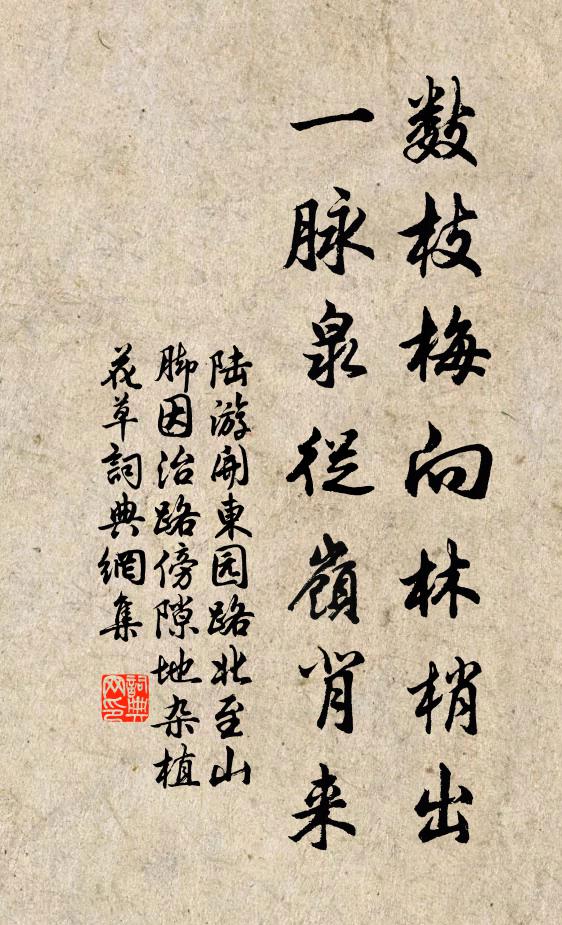 数枝梅向林梢出
一脉泉從嶺背来
陆游開東园路北至山
脚因治路傍隙地杂植
花草詞典網集
詞典
网印